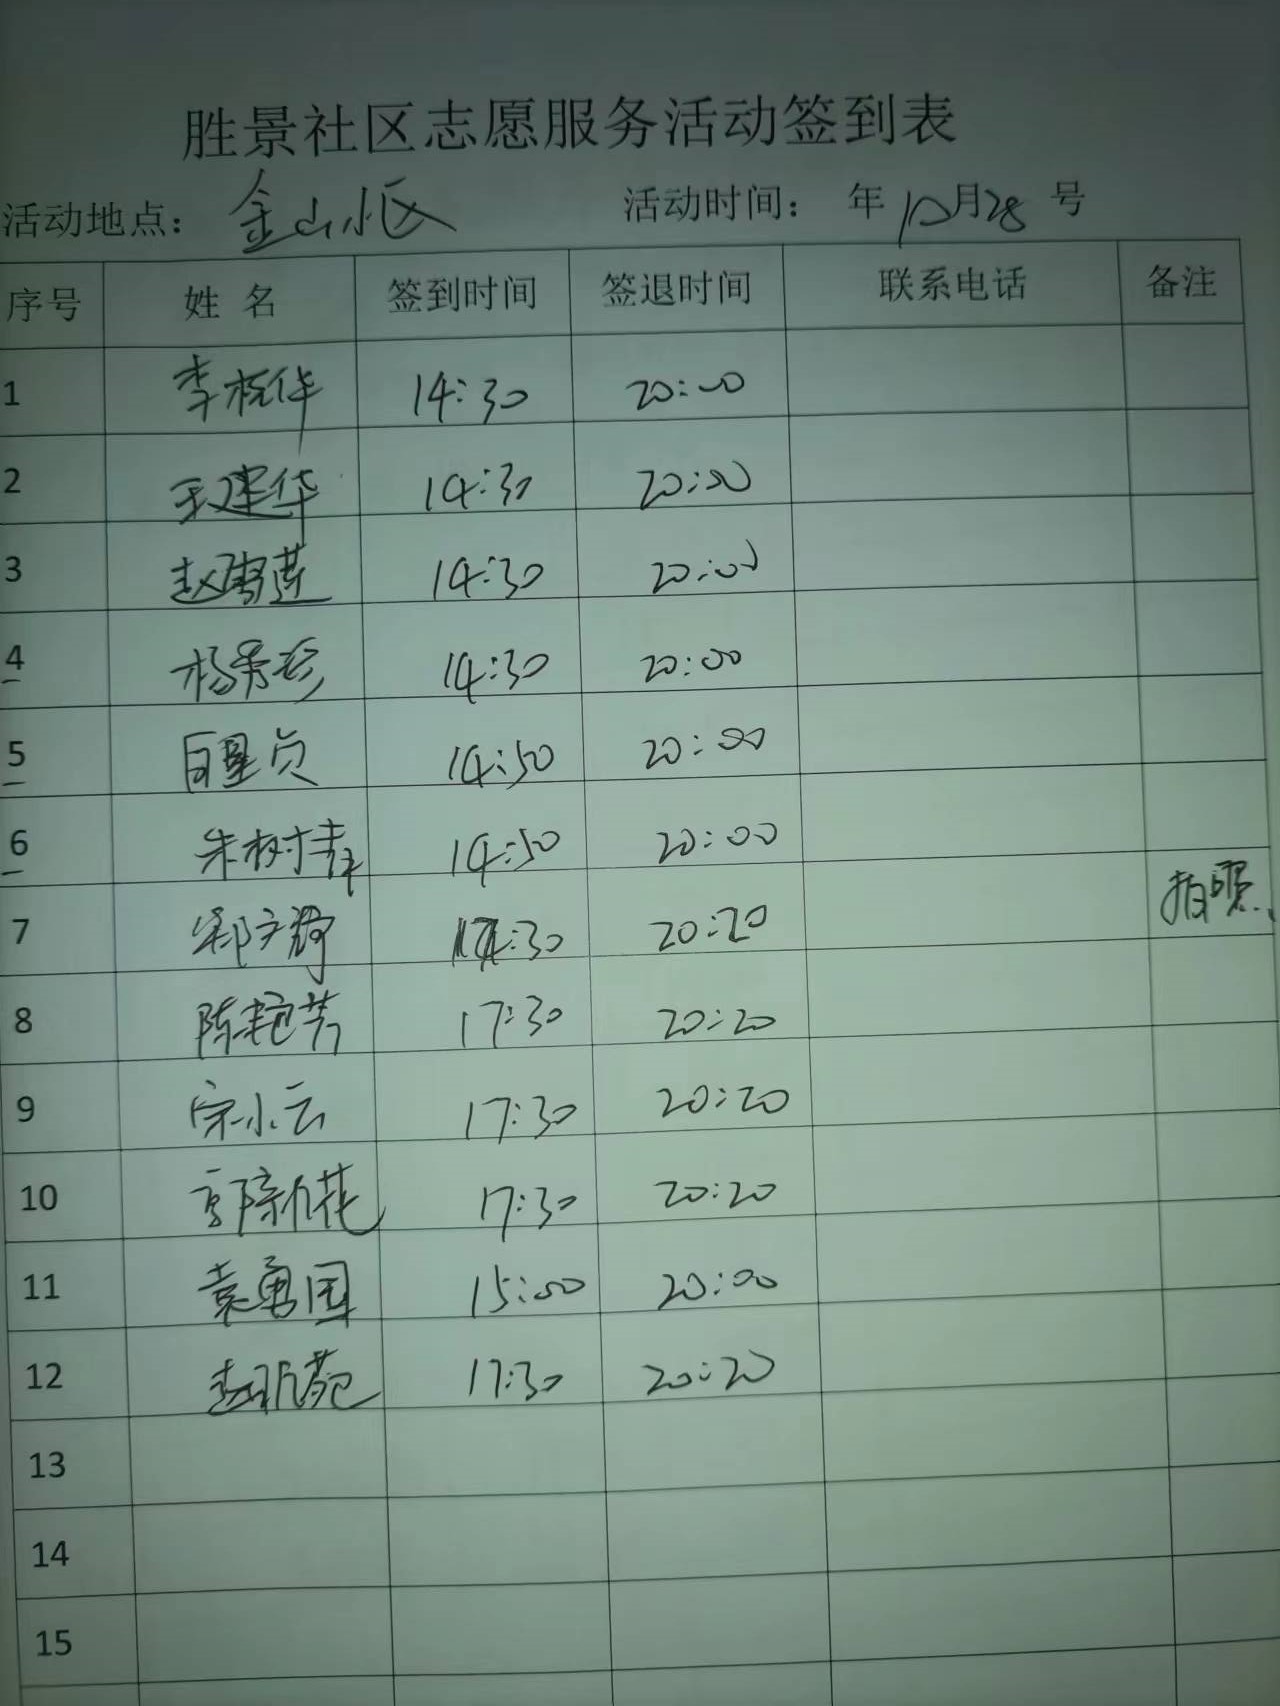 胜景社区志愿服务活动签到表
活动地点：金山小区 活动时间： 年10月28号
序号 姓名 签到时间 签退时间 联系电话 备注
1 李桂华 14:30 20:00
2 王建华 14:30 20:00
3 赵 莲 14:30 20:00
4 杨秀珍 14:30 20:00
5 白 贞 14:50 20:00
6 朱树青 14:50 20:00
7 17:30 20:20 拍照
8 陈艳芳 17:30 20:20
9 宋小云 17:30 20:20
10 郭新花 17:30 20:20
11 袁勇国 15:00 20:00
12 赵 苑 17:30 20:20
13
14
15